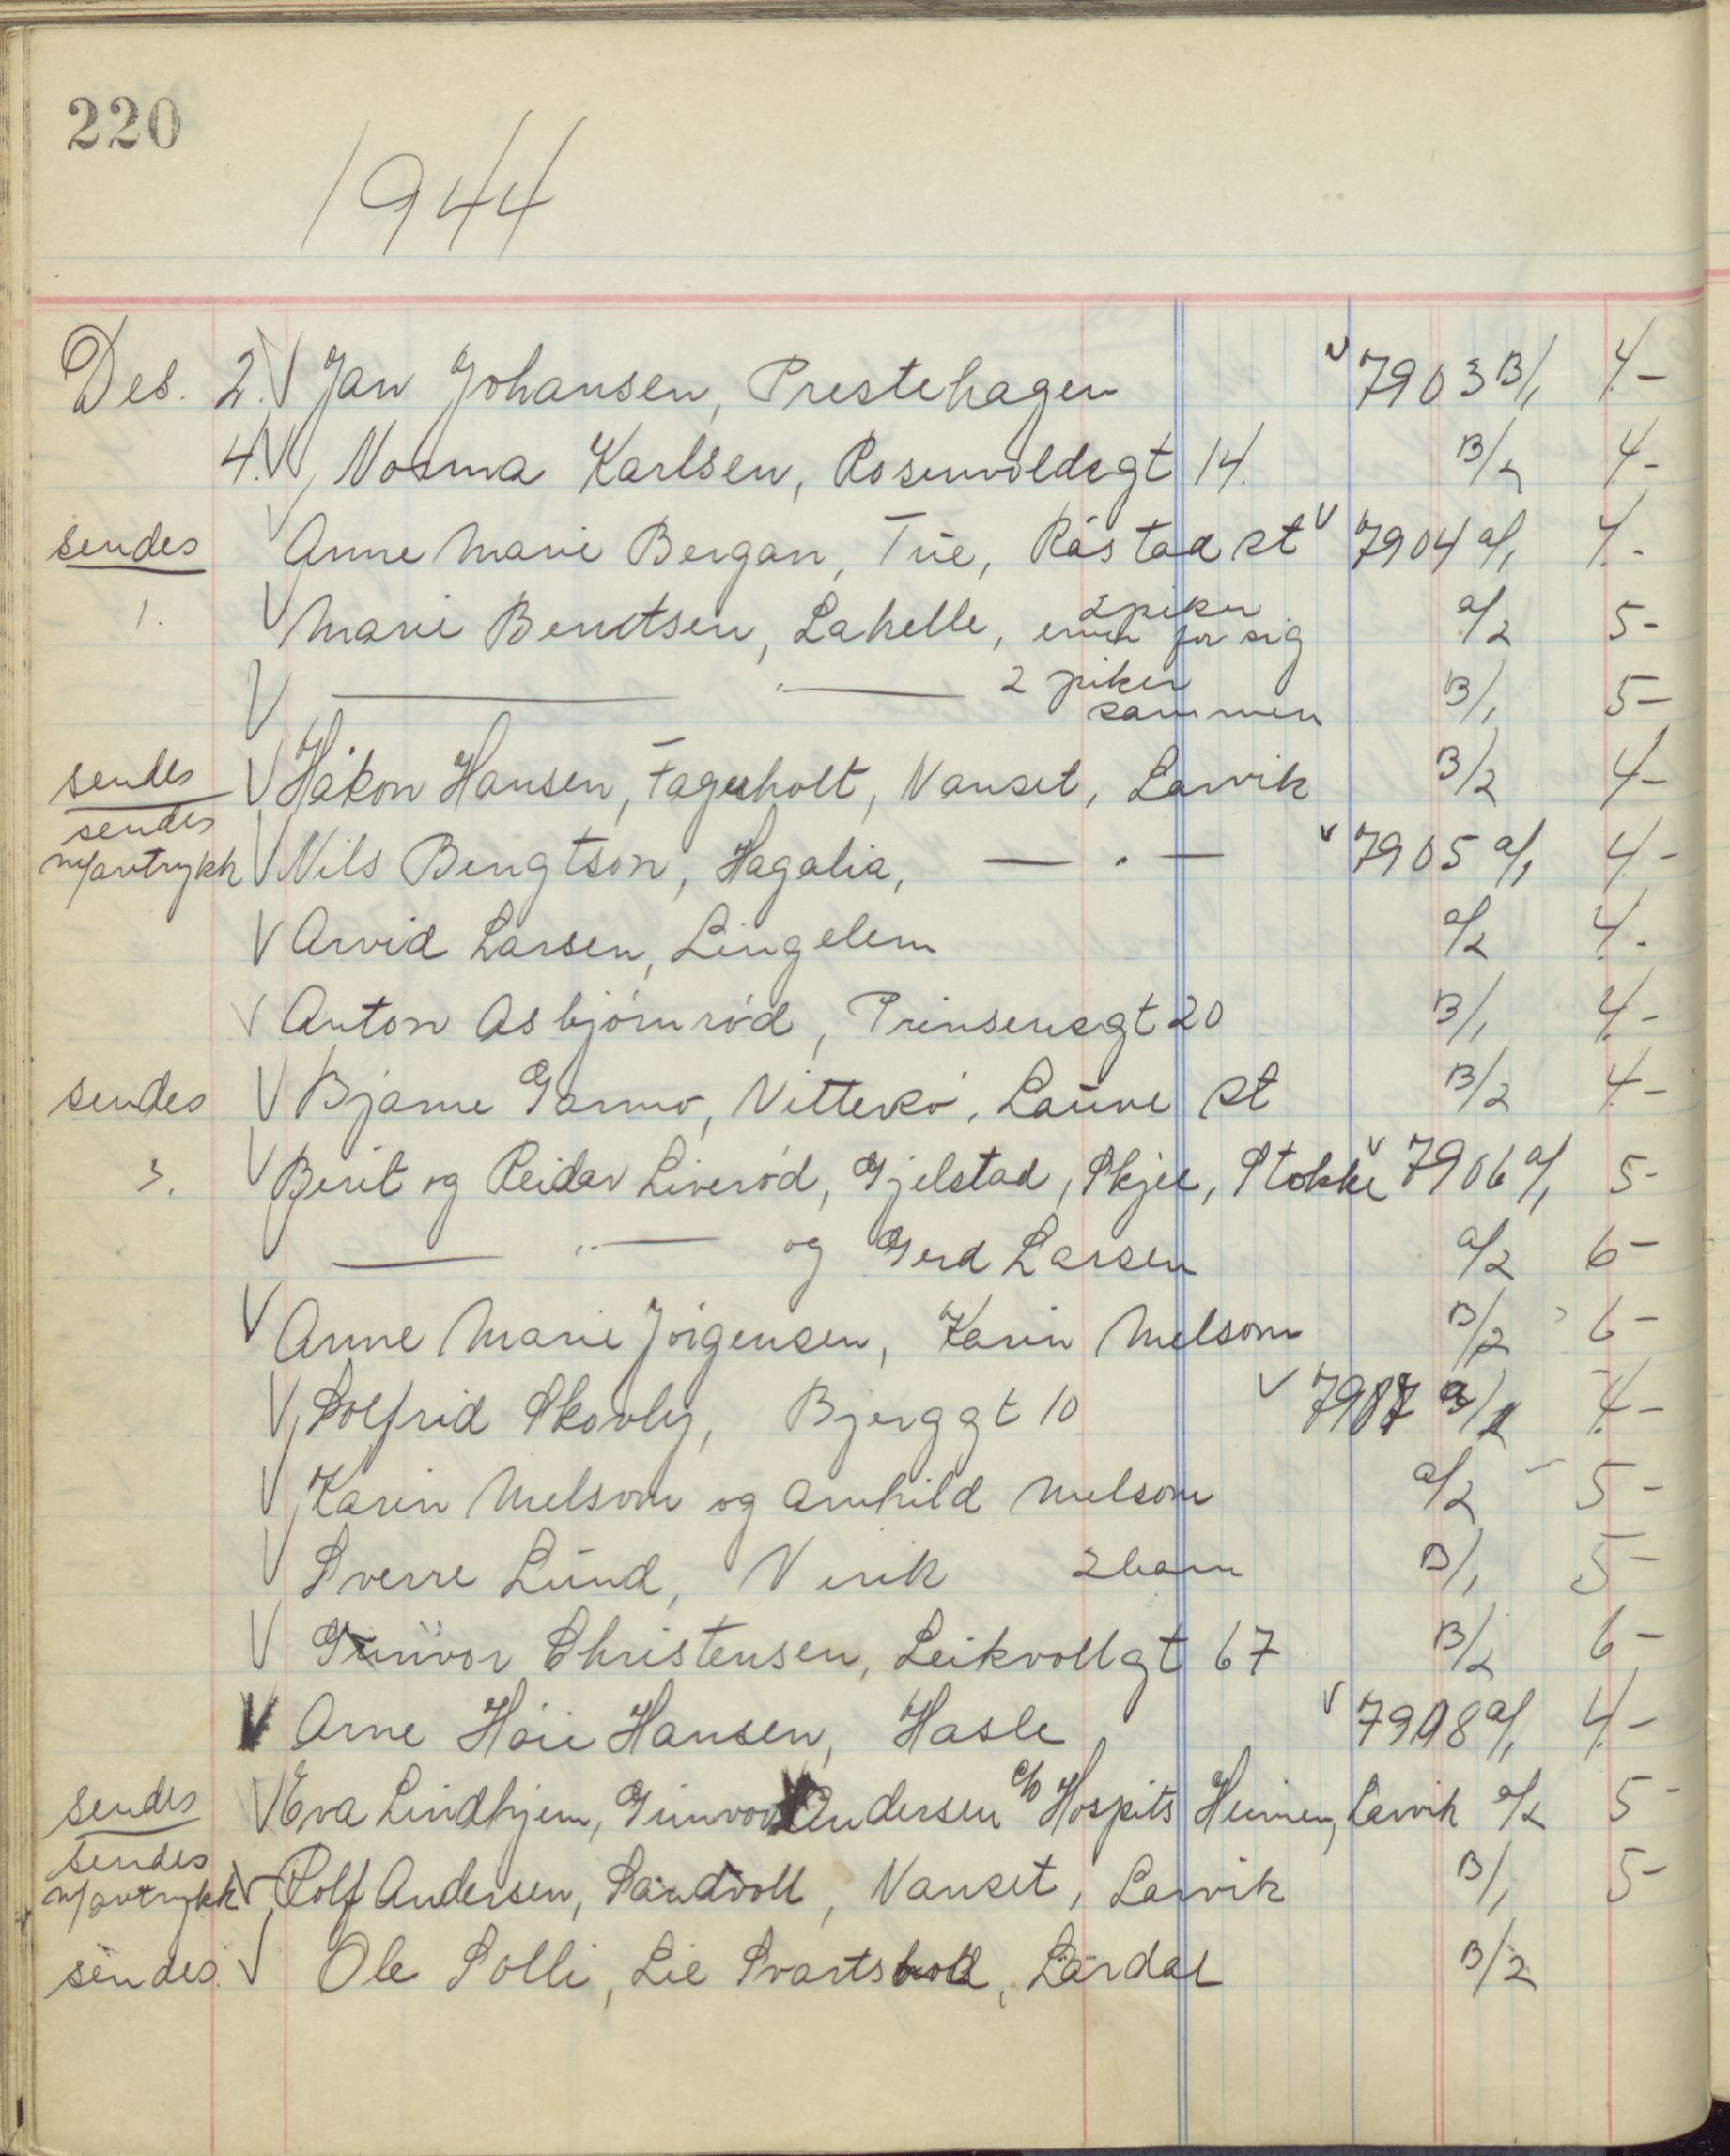 220
1944
Des. 2. V Jan Johansen, Prestehagen v 7903 B/1 4.-
4. V Norma Karlsen, Rosenvoldsgt 14. B/2 4-
sendes V Anne Marie Bergan, Tue, Råstad st v 7904 a/1 4.-
1. V Marie Berntsen, Lahelle, 2 piker for sig a/2 5-
V — " — 2 piker sammen B/1 5-
sendes V Håkon Hansen, Fagerholt, Nanset, Larvik B/2 4-
sendes
m/avtrykk V Nils Bengtson, Hagalia, — " — v 7905 a/1 4-
V Arvid Larsen, Lingelem a/2 4.-
V Anton Asbjørnrød, Prinsensgt 20 B/1 4-
sendes V Bjarne Garmo, Vittersø, Lauve st B/2 4-
3. V Berit og Reidar Liverød, Gjelstad, Skjee, Stokke v 7906 a/1 5-
V — " — og Gerd Larsen a/2 6-
V Anne Marie Jörgensen, Karin Melsom B/2 6-
V Solfrid Skovly, Bjerggt 10 v 7907 a/1 4-
V Karin Melsom og Arnhild Melsom a/2 5-
V Sverre Lund, Virik 2 barn B/1 5-
V Gunvor Christensen, Leikvollgt 67 B/2 6-
V Arne Høie Hansen, Hasle v 7908 a/1 4-
sendes V Eva Lindhjem, Gunvor Andersen c/o Hospits Heimen, Larvik a/2 5-
sendes
m/avtrykk V Rolf Andersen, Sandvoll, Nanset, Larvik B/1 5-
sendes. V Ole Solli, Lie Lardal B/2